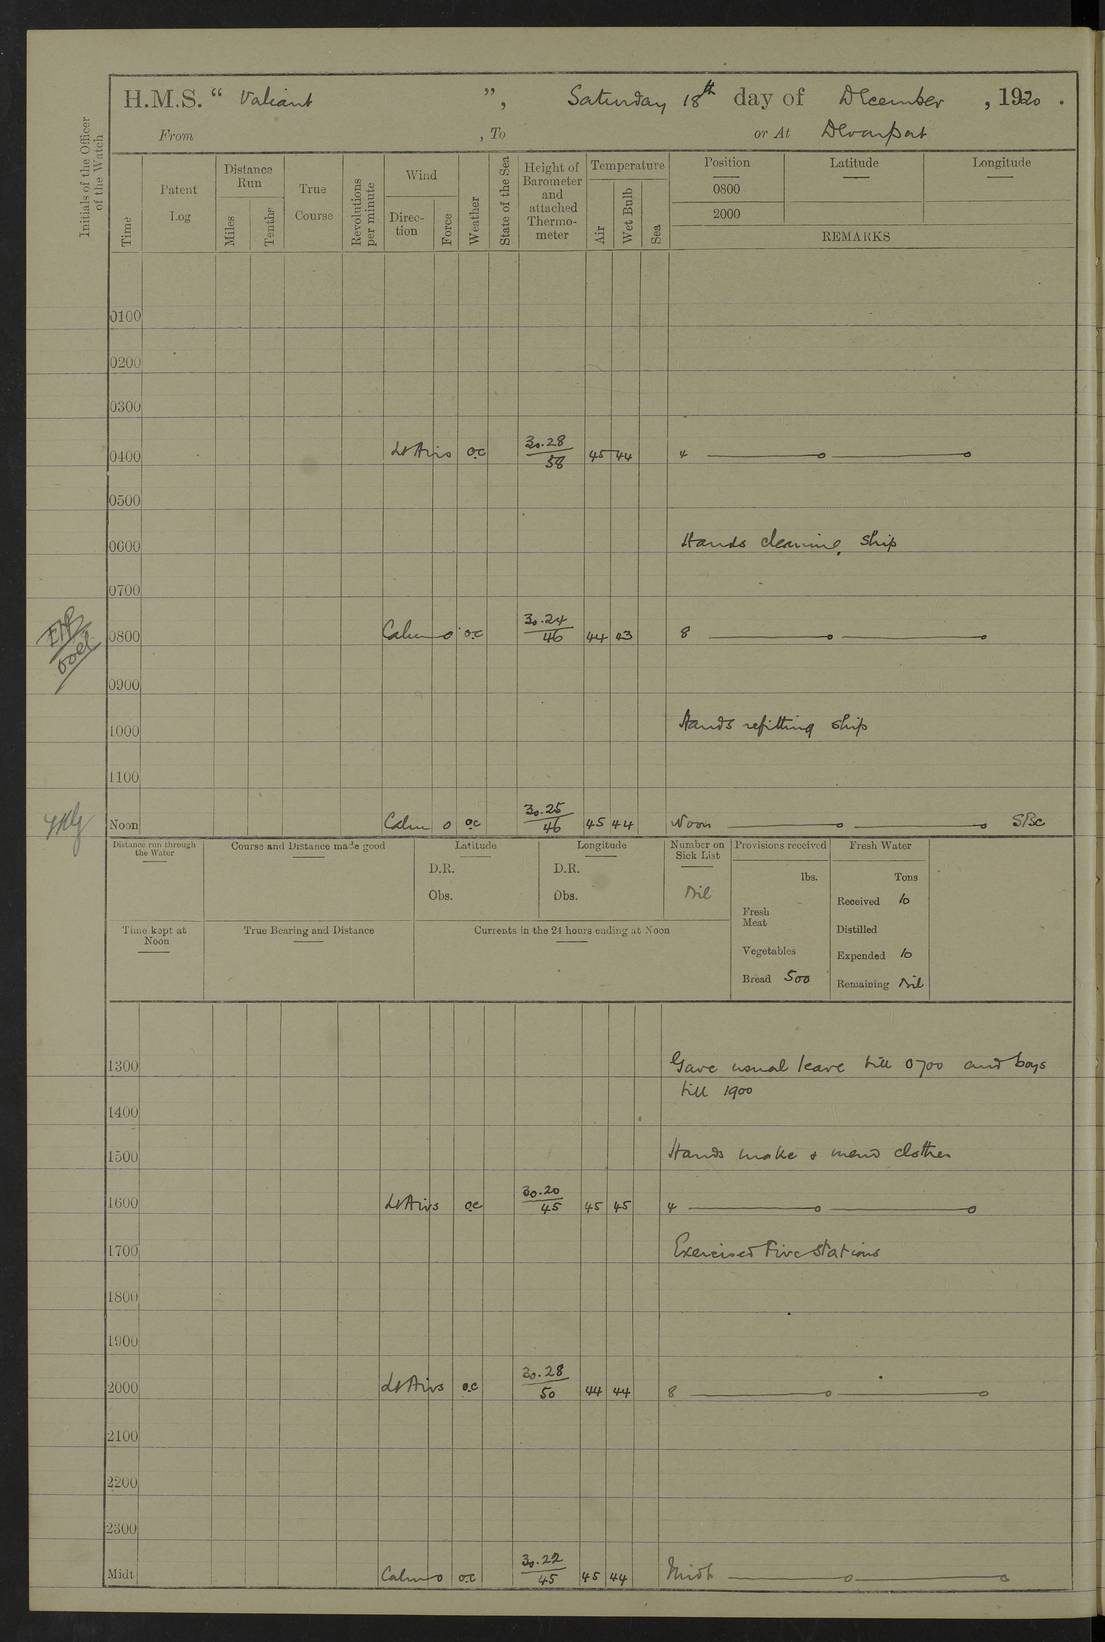 H.M.S. “ Valiant ”, Saturday 18th day of December , 1920 .
From , To or At Devonport
Initials of the Officer of the Watch
Time
Patent Log
Distance Run
Miles
Tenths
True Course
Revolutions per minute
Wind
Direc-tion
Force
Weather
State of the Sea
Height of Barometer and attached Thermo-meter
Temperature
Air
Wet Bulb
Sea
Position Latitude Longitude
0800
2000
REMARKS
0100
0200
0300
0400 Lt Airs oc 30.28/58 45 44 4
0500
0600 Hands cleaning ship
0700
0800 Calm 0 oc 30.24/46 44 43 8
0900
1000 Hands refitting ship
1100
Noon Calm 0 oc 30.25/46 45 44 Noon SBC
Distance run through the Water
Course and Distance made good
Latitude
D.R.
Obs.
Longitude
D.R.
Obs.
Number on Sick List
Nil
Provisions received
lbs.
Fresh Meat
Vegetables
Bread 500
Fresh Water
Tons
Received 10
Distilled
Expended 10
Remaining Nil
Time kept at Noon
True Bearing and Distance
Currents in the 24 hours ending at Noon
1300 Gave usual leave till 0700 and boys
till 1900
1400
1500 Hands make & mend clothes
1600 Lt Airs oc 30.20/45 45 45 4
1700 Exercised Fire Stations
1800
1900
2000 Lt Airs oc 30.28/50 44 44 8
2100
2200
2300
Midt Calm 0 oc 30.22/45 45 44 Midt